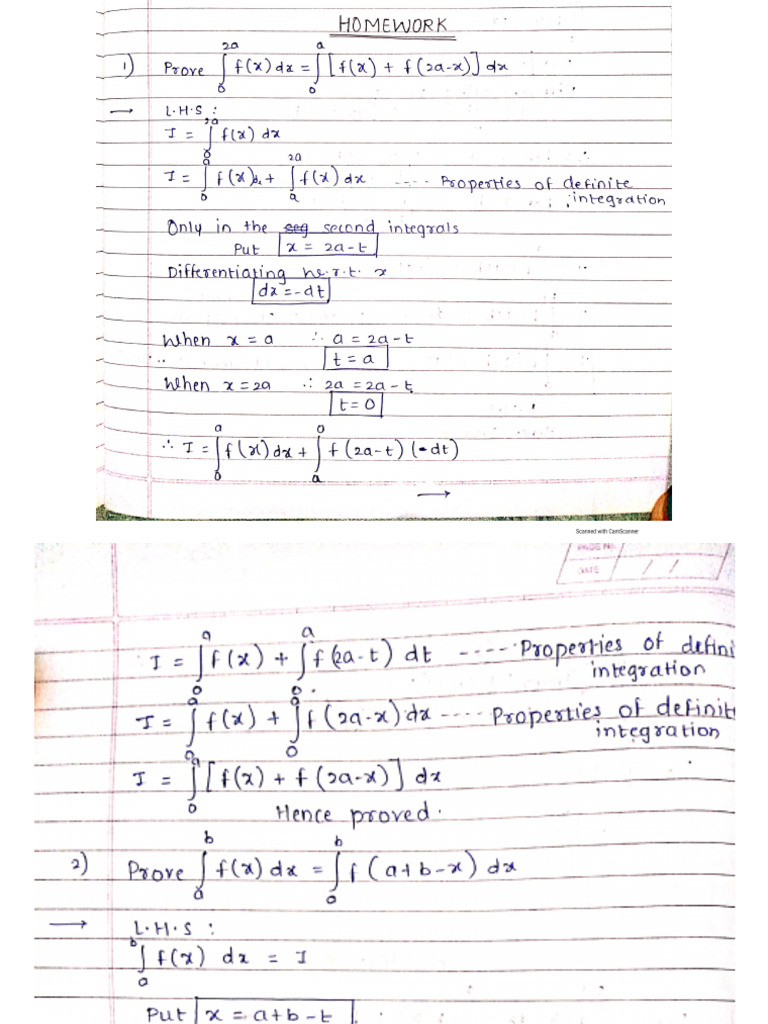 HOMEWORK
1) Prove ∫₀²ᵃ f(x) dx = ∫₀ᵃ [f(x) + f(2a-x)] dx
→ L.H.S :
I = ∫₀²ᵃ f(x) dx
I = ∫₀ᵃ f(x)dx + ∫ₐ²ᵃ f(x) dx ---- Properties of definite
integration
Only in the second integrals
Put x = 2a-t
Differentiating w.r.t. x
dx = -dt
When x = a ∴ a = 2a-t
t = a
When x = 2a ∴ 2a = 2a-t
t = 0
∴ I = ∫₀ᵃ f(x) dx + ∫ₐ⁰ f(2a-t) (-dt)
→
Scanned with CamScanner
PAGE No.
DATE / /
I = ∫₀ᵃ f(x) + ∫₀ᵃ f(2a-t) dt ---- Properties of defini
integration
I = ∫₀ᵃ f(x) + ∫₀ᵃ f(2a-x) dx ---- Properties of definit
integration
I = ∫₀ᵃ [f(x) + f(2a-x)] dx
Hence proved.
2) Prove ∫ₐᵇ f(x) dx = ∫ₐᵇ f(a+b-x) dx
→ L.H.S :
∫ₐᵇ f(x) dx = I
Put x = a+b-t